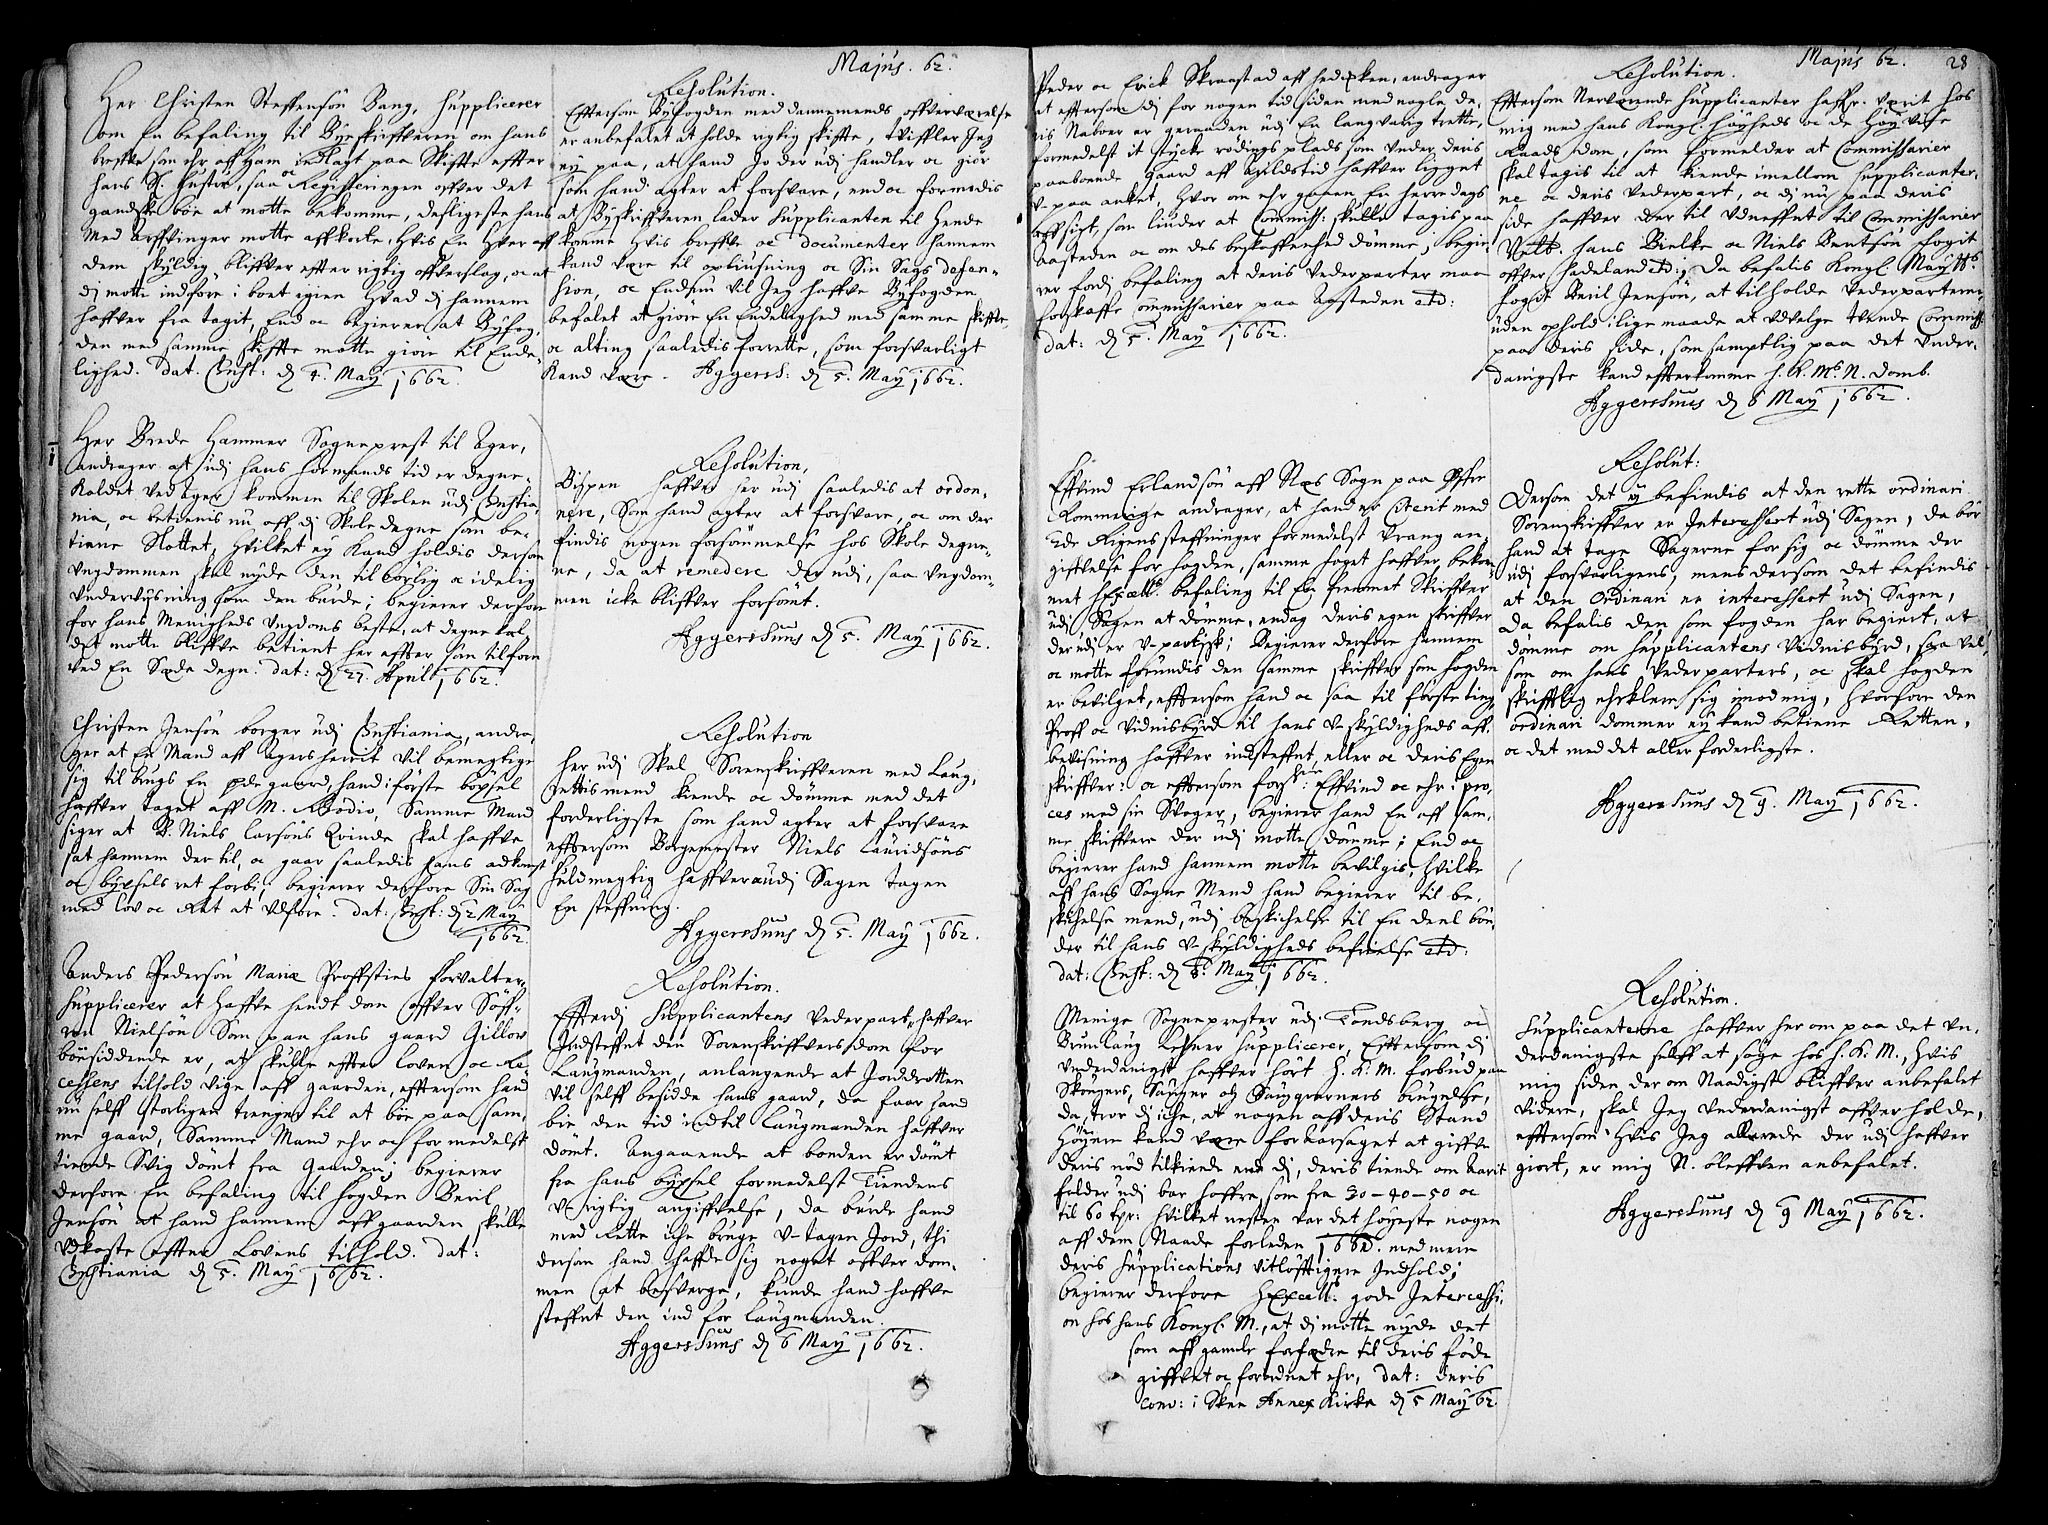 Majus. 62.
Her Christen Steffensøn Bang, supplicerer
om En befaling til Byeskriffveren om hans
breffve som ehr aff ham indlagt paa Skiffte effter
hans S. Hustru, saa oc Registeringen offver det
gandske boe at motte bekomme, desligeste hans
Med arffvinger motte affkorte, Hvis En hver aff
dem skyldig bliffver effter rigtig offverslag, oc at
di motte indføre i boet igien hvad di hannem
haffver fra tagit, End oc begierer at Byfog-
den med samme skiffte motte giøre til Ende-
lighed. Dat. Christ: d 4. May 1662.
Resolution.
Efftersom Byfogden med dannemends offverværelse
er anbefalet at holde rigtig skiffte, tviffler Jeg
ey paa, at hand Jo der udj handler oc giør
som hand agter at forsvare, end oc formedis
at Byskriffveren lader Supplicanten til hende
komme hvis breffve oc documenter hannem
kand være til opliusning oc Sin Sags defen-
sion, oc Endsiu vil Jeg haffve Byfogden
befalet at giøre En Endelighed med samme skiffte
oc alting saaledis forrette, som forsvarligt
kand være. Aggersh: d 5. May 1662.
Her Brede Hammer Sogneprest til Ager,
andrager at udj hans formands tid er degne-
kaldet ved Ager kommen til Skolen udj Christia-
nia, oc betienis nu aff di Skole degne som be-
tiene Slottet, hvilket ey kand holdis dersom
ungdommen skal nyde den tilbørlig oc idelig
undervysning som den burde; begierer derfore
for hans Menigheds Ungdoms beste, at degnekal-
det motte bliffve betient her effter som tilforn
ved En Sæde degn. dat: d 27. April 1662.
Resolution.
Bispen haffver her udj saaledis at ordon-
nere, Som hand agter at forsvare, oc om der
findis nogen forsømmelse hos Skole degne-
ne, da at remedere der udj, saa ungdom-
men icke bliffver forsømt.
Aggershuus d 5. May 1662.
Christen Jensøn borger udj Christiania, andra-
ger at En Mand aff Agersherrit vil bemegtige
sig til brugs En øde gaard, hand i første bøxsel
haffver taget aff M. Bodio, Samme Mand
siger at B. Niels Larsøns Qvinde skal haffve
sat hannem der til, oc gaar saaledis hans adkomst
oc byxsels ret forbi, begierer derfore Sin Sag
med lov oc Ret at udføre. dat: Christ: d 2 May
1662.
Resolution
her udj Skal Sorenskriffveren med Laug-
rettismend kiende oc dømme med det
forderligste som hand agter at forsvare
efftersom Borgemester Niels Lauridsøns
fuldmegtig haffver udj Sagen tagen
En steffning.
Aggershuus d 5. May 1662.
Anders Pedersøn Mariæ Proffsties forvalter
Supplicerer at haffve hendt dom offver Søff-
ren Nielsøn Som paa hans gaard Gillov
boesiddende er, at skulle effter loven oc Re-
cessens tilhold vige aff gaarden, efftersom hand
nu selff storligen trenger til at boe paa sam-
me gaard, Samme Mand ehr och formedelst
tiende Svig dømt fra Gaarden; begierer
derfore En befaling til fogden Bertil
Jensøn at hand hannem aff gaarden skulle
udkaste effter Lovens tilhold. dat:
Christiania d 5. May 1662.
Resolution.
Effterdj Supplicantens Vederpart, haffver
Indsteffnt den Sorenskriffvers dom for
Laugmanden, anlangende at Jorddrotten
vil selff besidde hans gaard, da faar hand
bie den tid indtil Laugmanden haffver
dømt. Angaaende at bonden er dømt
fra hans byxsel formedelst Tiendens
v-rigtig angiffvelse, da burde hand
med Rette icke bruge v-tagen Jord, thi
dersom hand haffde sig noget offver dom-
men at besverge, kunde hand haffve
steffnt den ind for Laugmanden.
Aggershuus d 6 May 1662.
Majus 62. 28
Peder oc Erick Skraastad aff hedecken, andrager
at efftersom di for nogen tid siden med nogle de-
ris Naboer er geraaden udj En langvarig trette,
formedelst it stycke rødings plads som under deris
paaboende gaard aff Arilds tid haffver ligget
v-paa anket, hvor om ehr gaaen En herredags
affsigt, som liuder at Commiss: skulle tagis paa
Aasteden oc om des beskaffenhed dømme; begie-
rer fordj befaling at deris Vederparter maa
forskaffe Commissarier paa Aasteden etc:
dat: d 5. May 1662.
Resolution.
Efftersom Nerverende supplicanter haffr. verit hos
mig med hans Kongl. høyheds oc de høy vise
Raads dom, som formelder at Commissarier
skal tagis til at kiende imellom supplicanter-
ne oc deris Vederpart, oc di nu paa deris
side haffver der til udneffnt til Commissarier
Velb. hans Bielke oc Niels Bentsøn fogit
offver hadeland etc:, Da befalis Kongl. May tts
fogit Bertil Jensøn, at tilholde Vederparterne
uden ophold i lige maade at udvelge tvende Commiss:
paa deris side, som samptlig paa det under-
danigste kand effterkomme H. K. Ms N. Domb.
Aggershuus d 6 May 1662.
Effvind Erlandsøn aff Næs Sogn paa Øffre
Rommerige andrager, at hand er Citerit med
2de Rigens steffninger formedelst Vrang an-
giffvelse for fogden, samme foget haffver bekom-
met hExcells. befaling til En fremmet Skriffver
udj Sagen at dømme, endog deris egen skriffver
der udj er v-partisk; Begierer derfore hannem
oc motte forundis den samme skriffver som fogden
er bevilget, efftersom hand oc saa til første ting,
Proff oc Vidnisbyrd til hans v-skyldigheds aff-
bevisning haffver indsteffnt, eller oc deris Egen
skriffver: oc efftersom forshne: Effvind oc ehr i pro-
ces med sin Svoger, begierer hand En aff sam-
me skriffvere der udj motte dømme; End oc
begierer hand hannem motte bevilgis, hvilke
aff hans Sogne Mend hand begierer til be-
skichelse mend, udj beskichelse til En deel bøn-
der til hans v-skyldigheds befrielse etc:
dat: Christ: d 8. May 1662.
Resolut:
Dersom det ey befindis at den rette ordinari
Sorenskriffver er Interessert udj Sagen, da bør
hand at tage Sagerne for sig oc dømme der
udj forsvarligens, mens dersom det befindis
at den Ordinari er interessert udj Sagen,
Da befalis den som fogden har begiert, at
dømme om supplicantens Vidnisbyrd, saa vel
som om hans Vederparters, oc skal fogden
skrifftlig ehrklere sig imod mig, hvorfore den
ordinari dommer ey kand betiene Retten,
oc det med det aller forderligste.
Aggershuus d 9. May 1662.
Menige Sogneprester udj Tønsberg oc
Brunlaug Lehner supplicerer, Efftersom di
underdanigst haffver hørt H. K. M. forbud paa
Skougers, Sauger och Saugqverners brugelse,
da tror di icke, at nogen aff deris Stand
høyere kand være foraarsaget at giffve
deris nød tilkiende end di, deris tiende om Aarit
falder udj bar haffre, som fra 30-40-50 oc
til 60 tyr: hvilket nesten var det høyeste nogen
aff dem Naade forleden 1661. med mere
deris Supplications vitløfftigere Indhold;
begierer derfore hExcells: gode Intercessi-
on hos hans Kongl. M., at di motte nyde det
som aff gamle forfædre til deris føde
giffvet oc forordnet ehr, dat: deris
conv: i Skee Annex Kirke d 5 May 62.
Resolution.
Supplicanterne haffver her om paa det un-
derdanigste selff at søge hos H. K. M., hvis
mig siden der om Naadigst bliffver anbefalet
videre, skal Jeg underdanigst offverholde,
efftersom hvis Jeg allerede der udj haffver
giort, er mig N. bleffven anbefalet.
Aggershuus d 9 May 1662.